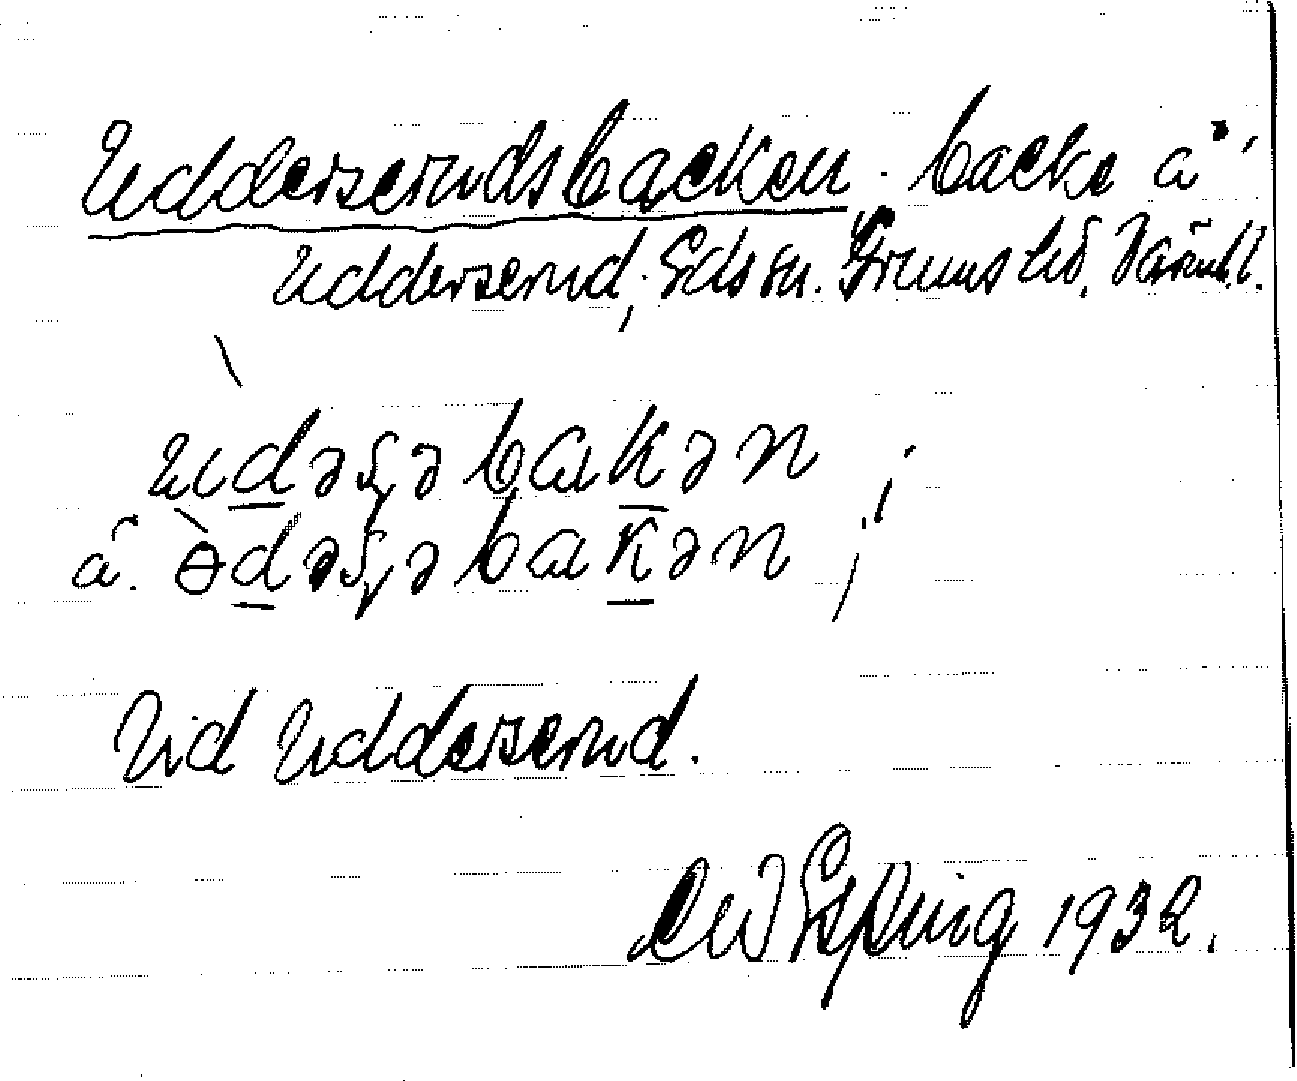 Uddersrudsbacken. backe å
Uddersrud, Eds sn. Grums hd, Värml.
ud̲əs̨əbak̲ən ;
ä. ɵ̀d̲əs̨əbak̲ən ;
Vid Uddersrud.
1932.